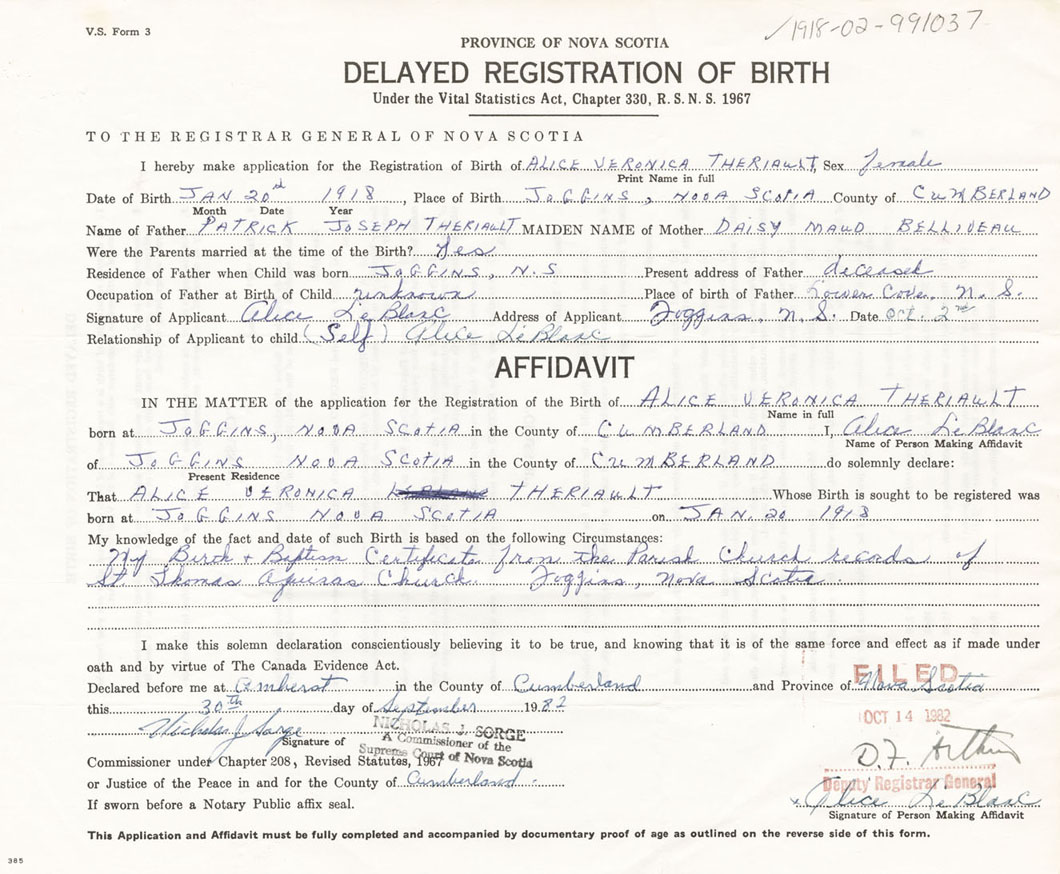 V.S. Form 3
✓1918-02-991037
PROVINCE OF NOVA SCOTIA
DELAYED REGISTRATION OF BIRTH
Under the Vital Statistics Act, Chapter 330, R. S. N. S. 1967
TO THE REGISTRAR GENERAL OF NOVA SCOTIA
I hereby make application for the Registration of Birth of ALICE VERONICA THERIAULT, Sex female
Print Name in full
Date of Birth JAN 20nd 1918, Place of Birth JOGGINS, NOVA SCOTIA County of CUMBERLAND
Month Date Year
Name of Father PATRICK JOSEPH THERIAULT MAIDEN NAME of Mother DAISY MAUD BELLIVEAU
Were the Parents married at the time of the Birth? Yes
Residence of Father when Child was born JOGGINS, N.S Present address of Father deceased
Occupation of Father at Birth of Child unknown Place of birth of Father Lower Cove, N. S.
Signature of Applicant Alice LeBlanc Address of Applicant Joggins, N. S. Date Oct. 2nd
Relationship of Applicant to child (Self) Alice LeBlanc
AFFIDAVIT
IN THE MATTER of the application for the Registration of the Birth of ALICE VERONICA THERIAULT
Name in full
born at JOGGINS, NOVA SCOTIA in the County of CUMBERLAND I, Alice LeBlanc
Name of Person Making Affidavit
of JOGGINS NOVA SCOTIA in the County of CUMBERLAND do solemnly declare:
Present Residence
That ALICE VERONICA THERIAULT Whose Birth is sought to be registered was
born at JOGGINS NOVA SCOTIA on JAN. 20 1918
My knowledge of the fact and date of such Birth is based on the following Circumstances:
My Birth + Baptism Certificate from the Parish Church records of
St Thomas Aquinas Church. Joggins, Nova Scotia.
I make this solemn declaration conscientiously believing it to be true, and knowing that it is of the same force and effect as if made under
oath and by virtue of The Canada Evidence Act.
Declared before me at Amherst in the County of Cumberland and Province of Nova Scotia
FILED
this 30th day of September 1982
OCT 14 1982
Nicholas J Sorge
Signature of
NICHOLAS J. SORGE
A Commissioner of the
Supreme Court of Nova Scotia
D.F. Arthur
Commissioner under Chapter 208, Revised Statutes, 1967
or Justice of the Peace in and for the County of Cumberland
Deputy Registrar General
If sworn before a Notary Public affix seal.
x Alice LeBlanc
Signature of Person Making Affidavit
This Application and Affidavit must be fully completed and accompanied by documentary proof of age as outlined on the reverse side of this form.
385